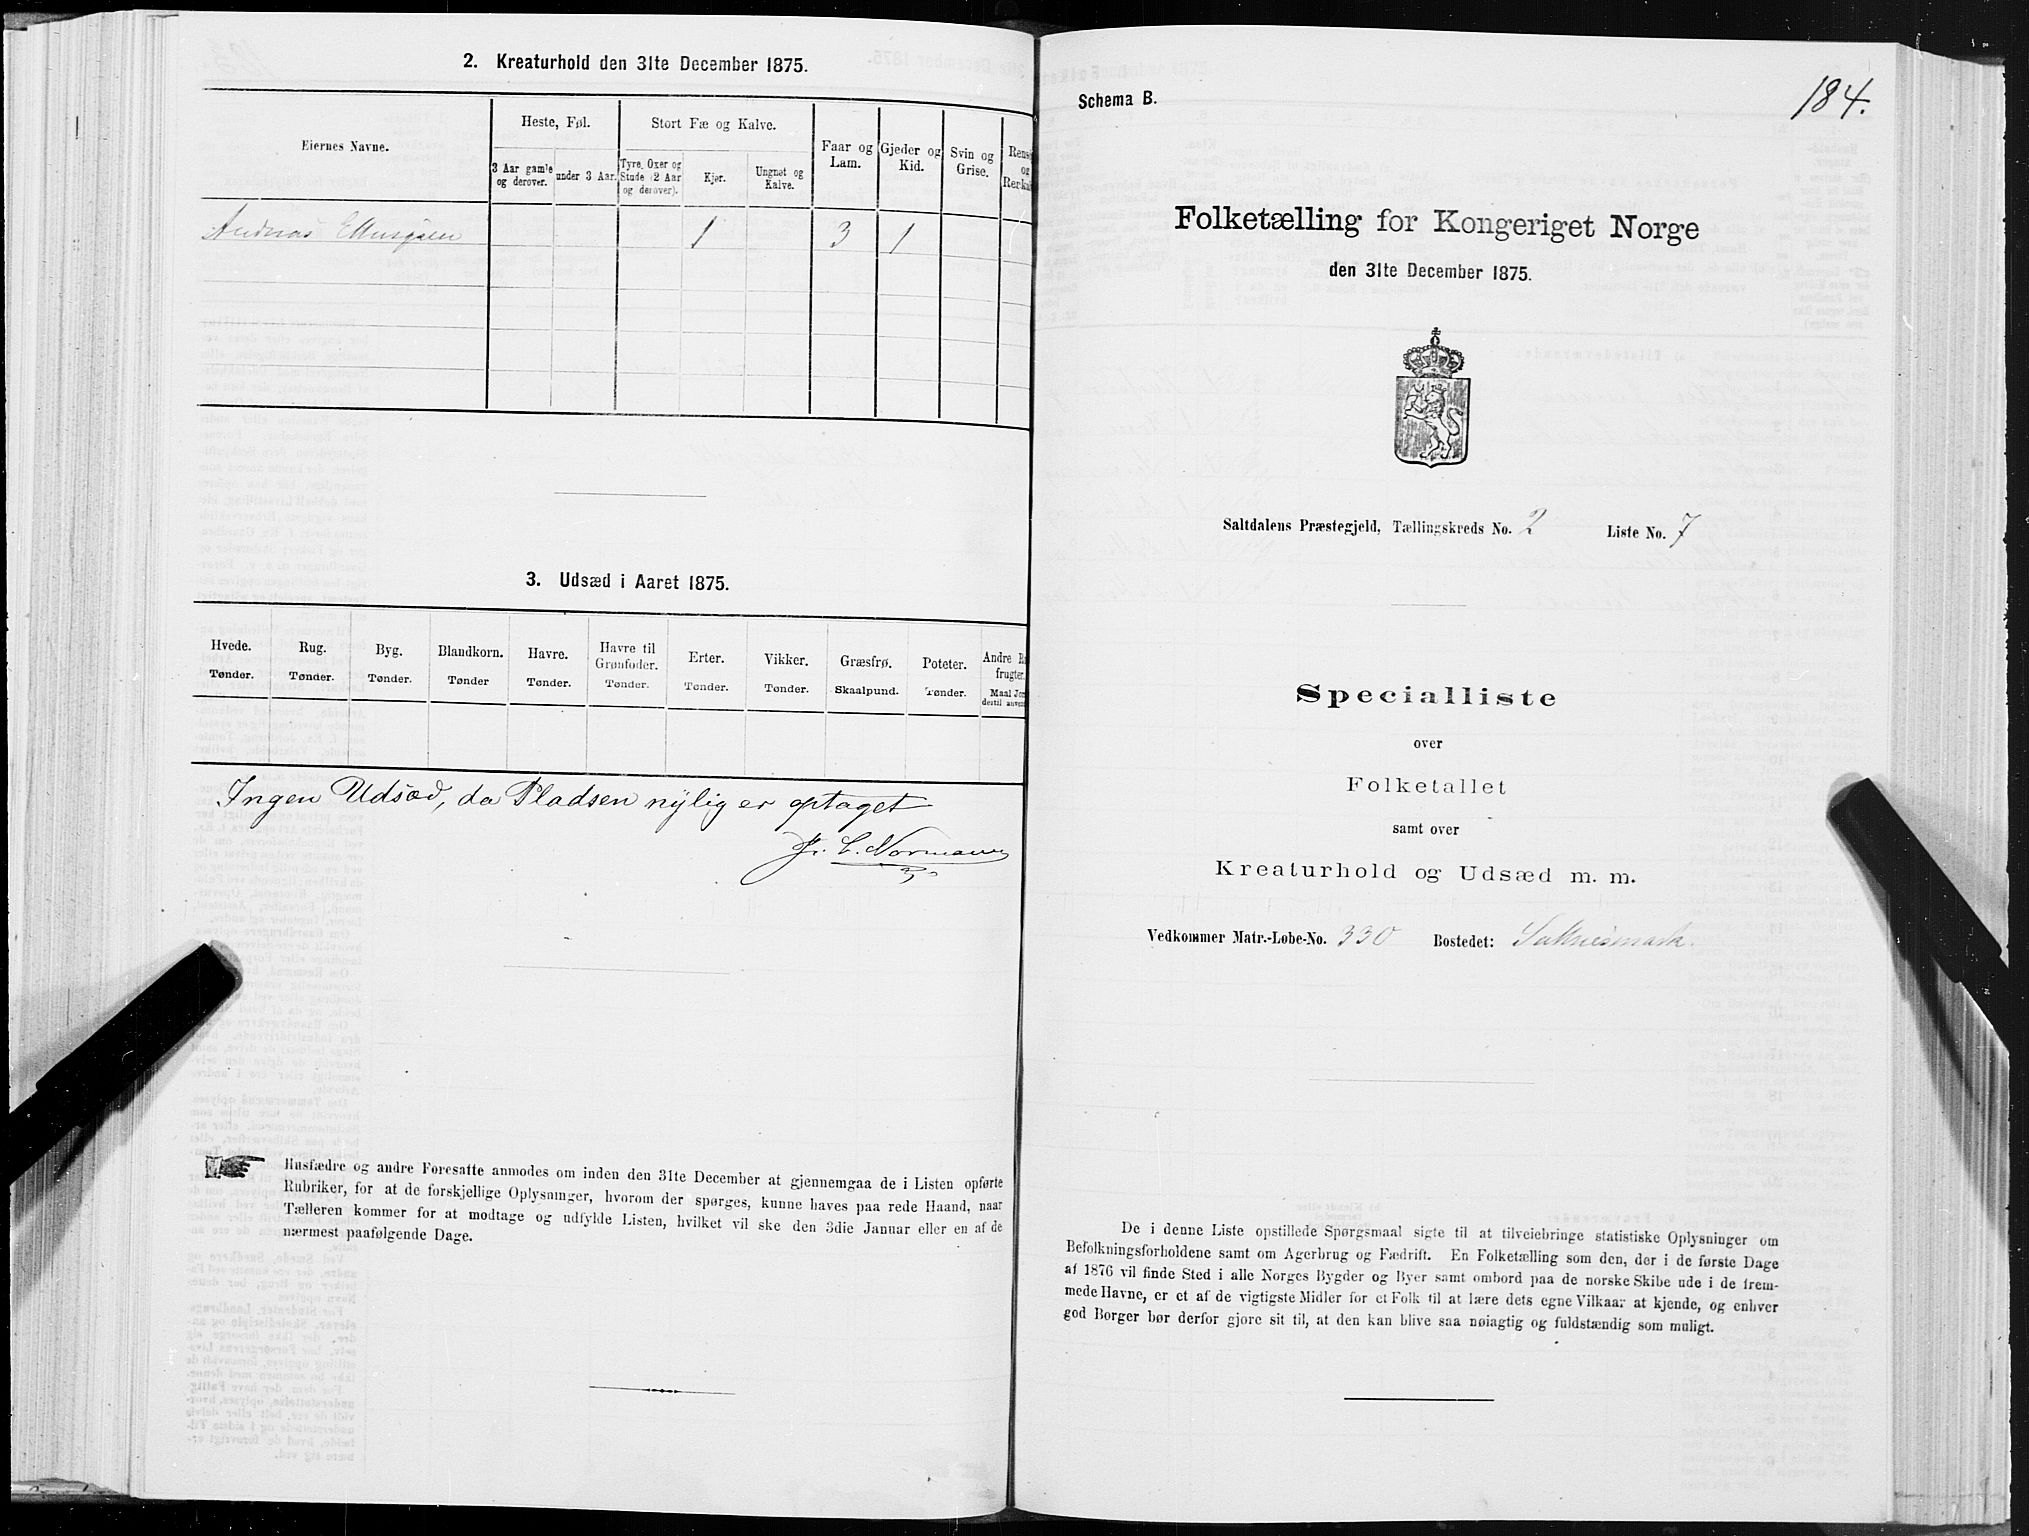 2. Kreaturhold den 31te December 1875.
Eiernes Navne.
Heste, Føl.
Stort Fæ og Kalve.
Faar og
Lam.
Gjeder og
Kid.
Svin og
Grise.
3 Aar gamle
og derover.
under 3 Aar.
Tyre, Oxer og
Stude (2 Aar
og derover).
Kjør.
Ungnøt og
Kalve.
1 3 1
3. Udsæd i Aaret 1875.
Hvede.
Tønder.
Rug.
Tønder.
Byg.
Tønder.
Blandkorn.
Tønder
Havre.
Tønder.
Havre til
Grønfoder.
Tønder.
Erter.
Tønder.
Vikker.
Tønder.
Græsfrø.
Skaalpund.
Poteter.
Tønder.
Andre
frugter.
Maal
Ingen Udsæd, da Pladsen nylig er optaget
Normann
Husfædre og andre Foresatte anmodes om inden den 31te December at gjennemgaa de i Listen opførte
Rubriker, for at de forskjellige Oplysninger, hvorom der spørges, kunne haves paa rede Haand, naar
Tælleren kommer for at modtage og udfylde Listen, hvilket vil ske den 3die Januar eller en af de
nærmest paafølgende Dage.
Schema B.
184.
Folketælling for Kongeriget Norge
den 31te December 1875.
Saltdalens Præstegjeld, Tællingskreds No. 2 Liste No. 7
Specialliste
over
Folketallet
samt over
Kreaturhold og Udsæd m. m.
Vedkommer Matr.-Løbe-No. 330 Bostedet:
De i denne Liste opstillede Spørgsmaal sigte til at tilveiebringe statistiske Oplysninger om
Befolkningsforholdene samt om Agerbrug og Fædrift. En Folketælling som den, der i de første Dage
af 1876 vil finde Sted i alle Norges Bygder og Byer samt ombord paa de norske Skibe ude i de frem-
mede Havne, er et af de vigtigste Midler for et Folk til at lære dets egne Vilkaar at kjende, og enhver
god Borger bør derfor gjøre sit til, at den kan blive saa nøiagtig og fuldstændig som muligt.